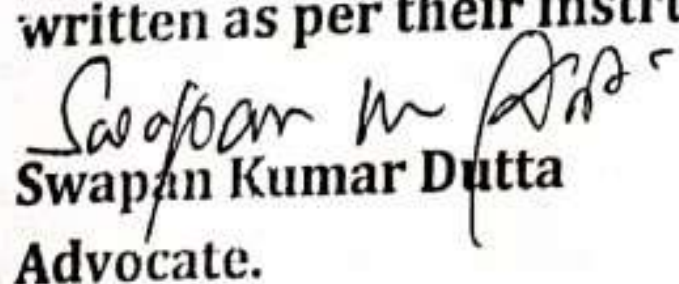 written as per their instr
Swapan Kr Dutta
Swapan Kumar Dutta
Advocate.